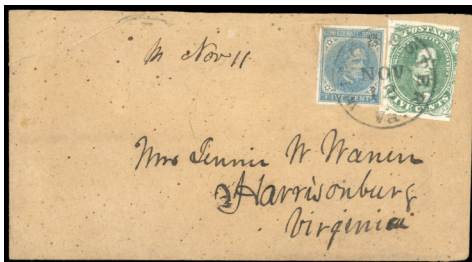 m Nov 11
POSTAGE
FIVE CENTS
FIVE CENTS
NOV
VA
Mrs Jennie W Warren
Harrisonburg
Virginia